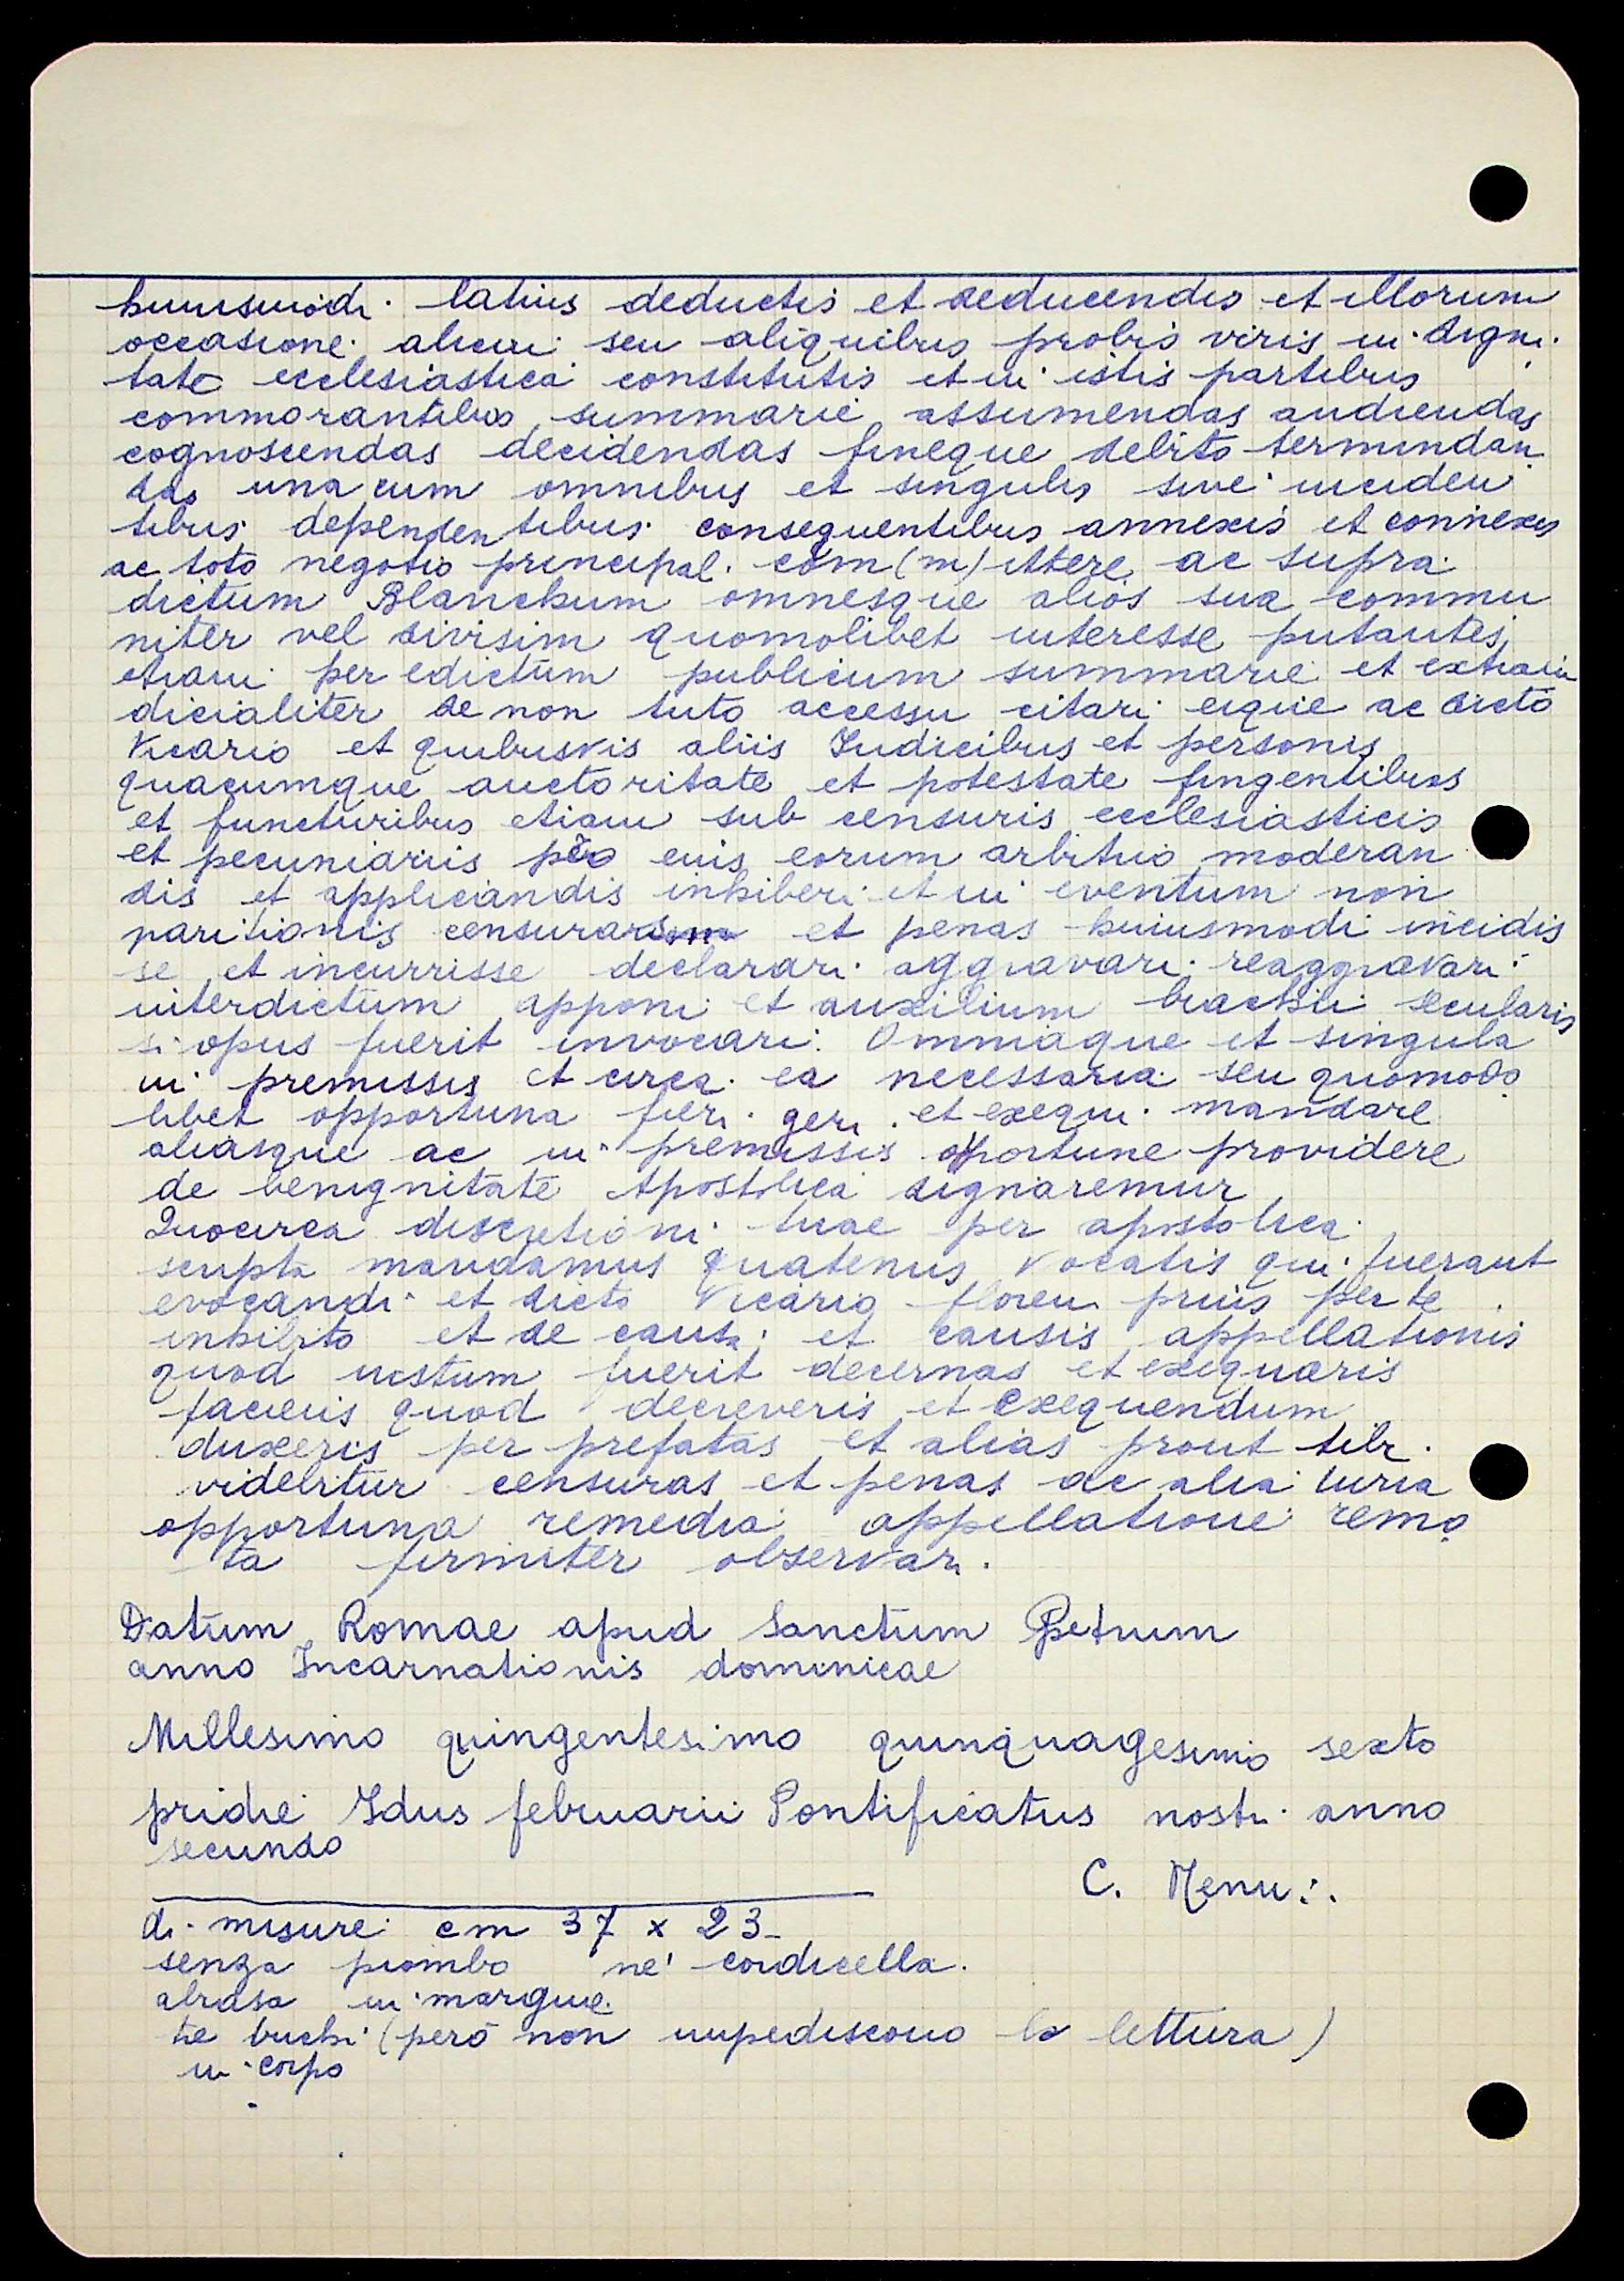 huiusmodi latius deductis et deducendis et illorum
occasione alicui seu aliquibus probis viris in digni
tate ecclesiastica constitutis et in istis partibus
commorantibus summarie assumendas audiendas
cognoscendas decidendas fineque debito termindan
das una cum omnibus et singulis sive inciden
tibus dependentibus consequentibus annexis et connexis
ac toto negotio principal. com(m)ittere ac supra
dictum Blanckum omnesque alios sua commu
niter vel divisim quomolibet interesse putantes
etiam per edictum publicum summarie et extraiu
dicialiter de non tuto accessu citari eique ac dicto
Vicario et quibusvis aliis Iudicibus et personis
quacumque auctoritate et potestate fungentibus
et functuribus etiam sub censuris ecclesiasticis
et pecuniariis eius eorum arbitrio moderan
dis et applicandis inhiberi et in eventum non
paritionis censuras et penas huiusmodi incidis
se et incurrisse declarari aggravari reaggravari
interdictum apponi et auxilium brachii secularis
si opus fuerit invocari. Omniaque et singula
in premissis et circa ea necessaria seu quomodo
libet opportuna fieri geri et exequi mandare
aliasque ac in premissis opportune providere
de benignitate Apostolica dignaremur
Quocirca discretioni tuae per apostolica
scripta mandamus quatenus vocatis qui fuerant
evocandi et dicto Vicario floren prius per te
inhibito et de causa et causis appellationis
quod iustum fuerit decernas et exequaris
facieis quod decreveris et exequendum
duxeris per prefatas et alias prout tibi
videbitur censuras et penas ac alia iuria
opportuna remedia appellatione remo
ta firmiter observari.
Datum Romae apud Sanctum Petrum
anno Incarnationis dominicae
Millesimo quingentesimo quinquagesimo sexto
pridie Idus februarii Pontificatus nostri anno
secundo
C. Menu:.
di misure cm 37 x 23-
senza piombo né cordicella.
abrasa in margine.
tre buchi (però non impediscono la lettura)
in corpo